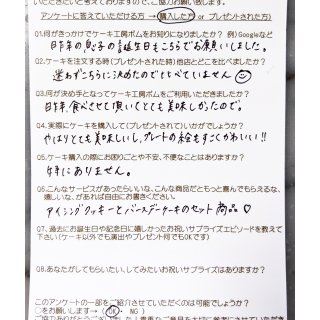 いただきたいと考えておりますので、ご協力お願い致します。
アンケートに答えていただける方 → (購入した方 or プレゼントされた方)
Q1.何がきっかけでケーキ工房ボムをお知りになりましたか？ 例)Googleなど
昨年の息子の誕生日もこちらでお願いしました。
Q2.ケーキを注文する時(プレゼントされた時)他店とどこを比べましたか？
迷わずこちらに決めたのでくらべていません
Q3.何が決め手となってケーキ工房ボムをご利用いただきましたか？
昨年、食べさせて頂いてとても美味しかったので。
Q4.実際にケーキを購入して(プレゼントされて)いかがでしょうか？
やはりとても美味しいし、プレートの絵もすごくかわいい!!
Q5.ケーキ購入の際にお困りごとや不安、不便なことはありますか？
特にありません。
Q6.こんなサービスがあったらいいな、こんな商品だともっと喜んでもらえるな、
嬉しいな、があれば自由にお書きください。
アイシングクッキーとバースデーケーキのセット商品♡
Q7、過去にお誕生日や記念日に嬉しかったお祝いサプライズエピソードを教えて
下さい(ケーキ以外でも演出やプレゼント何でもOKです)
Q8.あなたがしてもらいたい、してみたいお祝いサプライズはありますか？
このアンケートの一部をご紹介させていただくのは可能でしょうか？
○をお願いします→ ( OK ・ NG )